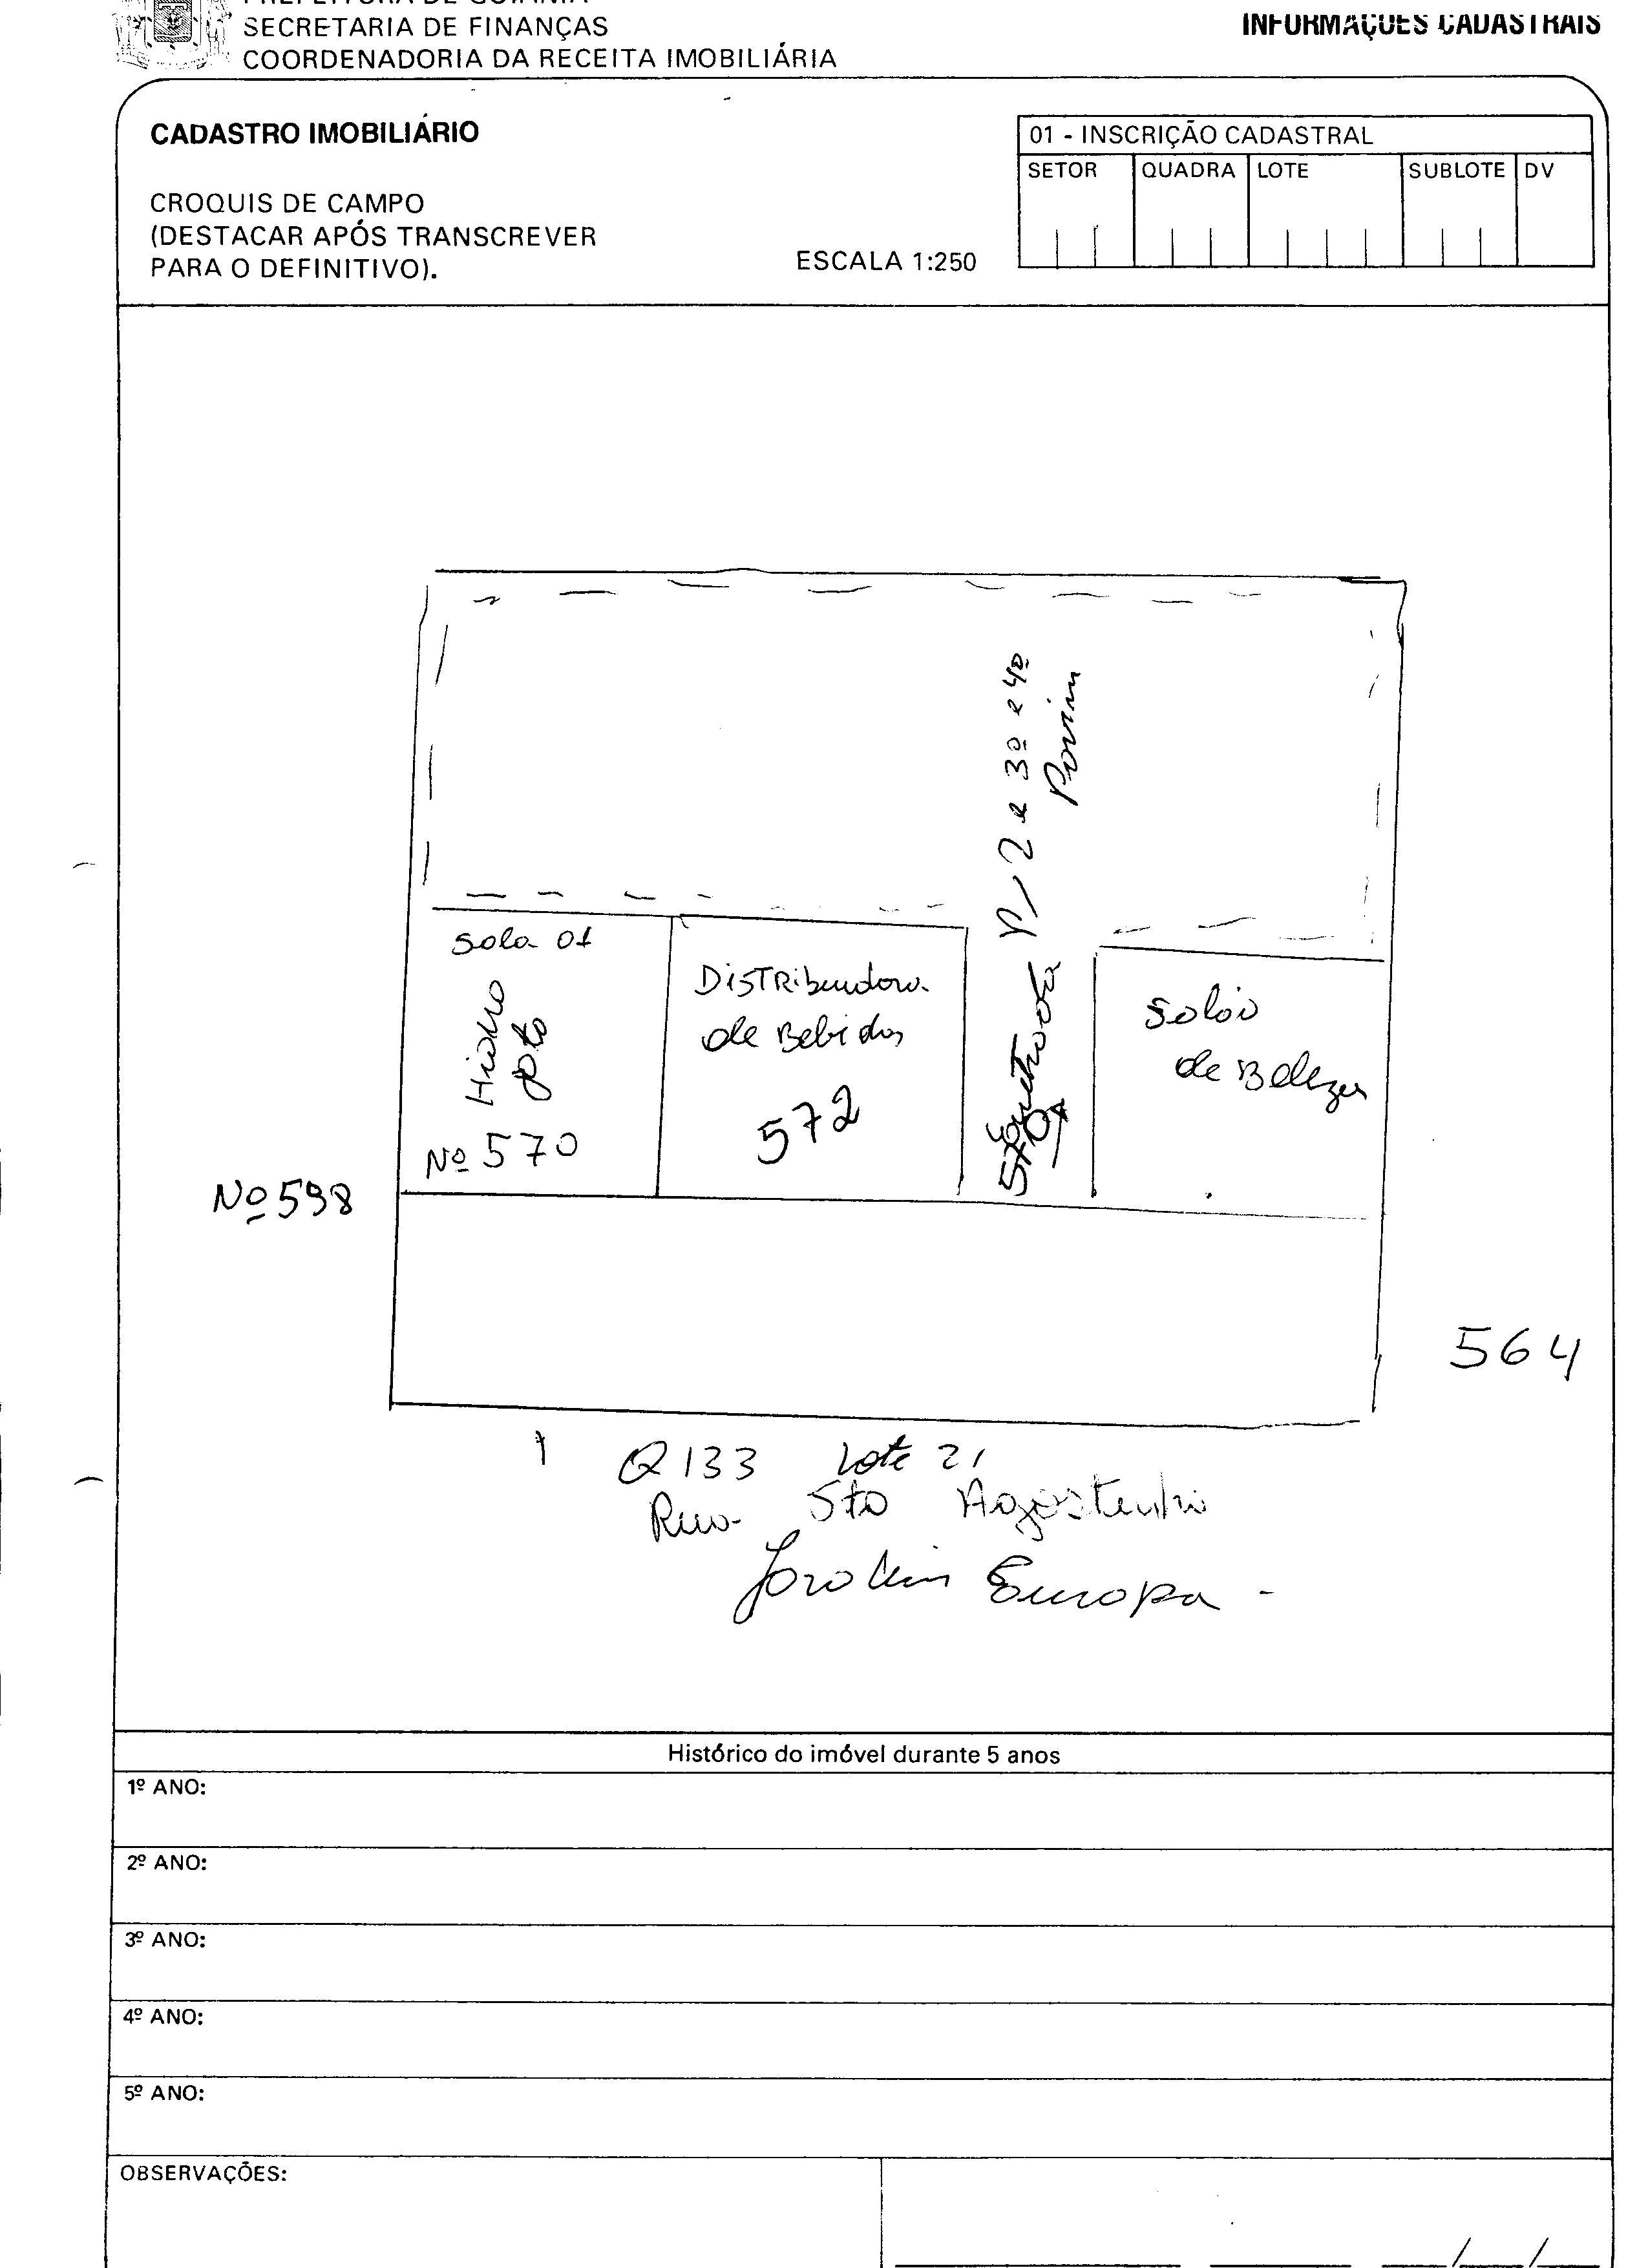 PREFEITURA DE GOIÂNIA
SECRETARIA DE FINANÇAS
COORDENADORIA DA RECEITA IMOBILIÁRIA
INFORMAÇÕES CADASTRAIS
CADASTRO IMOBILIÁRIO
CROQUIS DE CAMPO
(DESTACAR APÓS TRANSCREVER
PARA O DEFINITIVO).
ESCALA 1:250
01 - INSCRIÇÃO CADASTRAL
SETOR QUADRA LOTE SUBLOTE DV
Entrada P/ 2 e 3º e 4º
570A
Sala 01
Hidro
Nº 570
Distribuidora
de Bebidas
572
Salão
de Beleza
Nº 598
564
1
Q 133 Lote 21
Rua Sto Agostinho
Jardim Europa -
Histórico do imóvel durante 5 anos
1º ANO:
2º ANO:
3º ANO:
4º ANO:
5º ANO:
OBSERVAÇÕES: